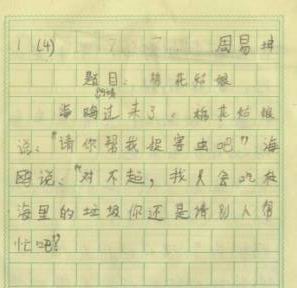 1 (4) 周易坤
题目: 棉花姑娘
海鸥过来了，棉花姑娘
说：“请你帮我捉害虫吧”海
鸥说：“对不起，我只会吃在
海里的垃圾你还是请别人帮
忙吧”